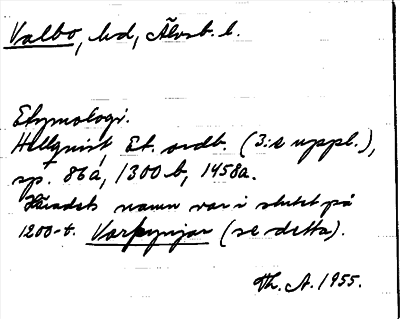 Valbo, hd, Älvsb. l.
Etymologi.
Hellquist, Et. ordb. (3:e uppl.),
sp. 86a, 1300b, 1458a.
Häradets namn var i slutet på
1200-t. Varkynjar (se detta).
Th. A. 1955.